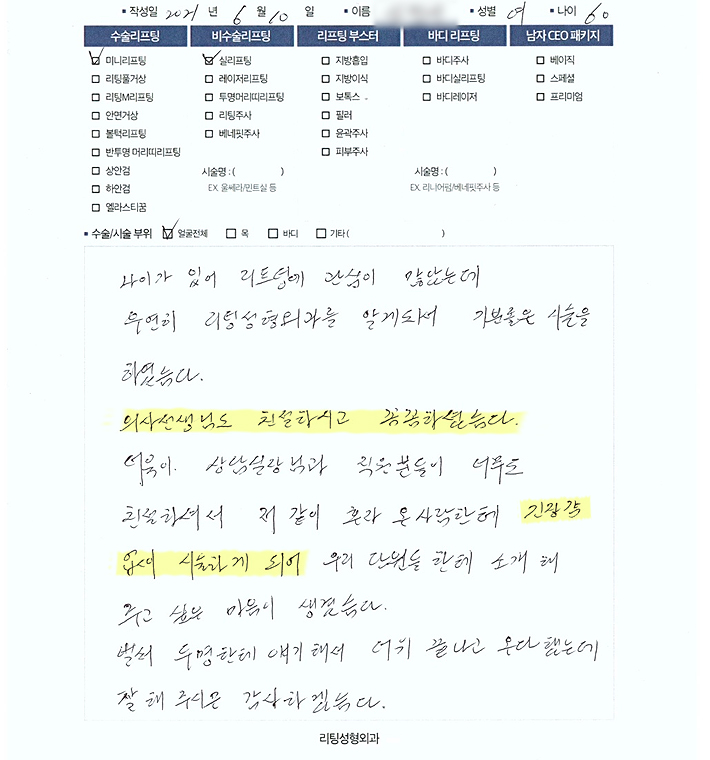 ▪ 작성일 2021 년 6 월 10 일 ▪ 이름 ▪ 성별 여 ▪ 나이 60
수술리프팅 비수술리프팅 리프팅 부스터 바디 리프팅 남자 CEO 패키지
☑ 미니리프팅 ☑ 실리프팅 □ 지방흡입 □ 바디주사 □ 베이직
□ 리팅풀거상 □ 레이저리프팅 □ 지방이식 □ 바디실리프팅 □ 스페셜
□ 리팅M리프팅 □ 투명머리띠리프팅 □ 보톡스 □ 바디레이저 □ 프리미엄
□ 안면거상 □ 리팅주사 □ 필러
□ 볼턱리프팅 □ 베네핏주사 □ 윤곽주사
□ 반투명 머리띠리프팅 □ 피부주사
□ 상안검 시술명 : ( ) 시술명 : ( )
□ 하안검 EX. 울쎄라/민트실 등 EX. 리니어펌/베네핏주사 등
□ 엘라스티꿈
▪ 수술/시술 부위 ☑ 얼굴전체 □ 목 □ 바디 □ 기타 ( )
나이가 있어 리프팅에 관심이 많았는데
우연히 리팅성형외과를 알게되서 기분좋은 시술을
하였습니다.
의사선생님도 친절하시고 꼼꼼하셨습니다.
더욱이 상담실장님과 직원분들이 너무도
친절하셔서 저 같이 혼자 온 사람한테 긴장감
없이 시술하게 되어 우리 단원들 한테 소개 해
주고 싶은 마음이 생겼습니다.
벌써 두명한테 얘기해서 더위 끝나고 온다 했는데
잘 해 주시면 감사하겠습니다.
리팅성형외과